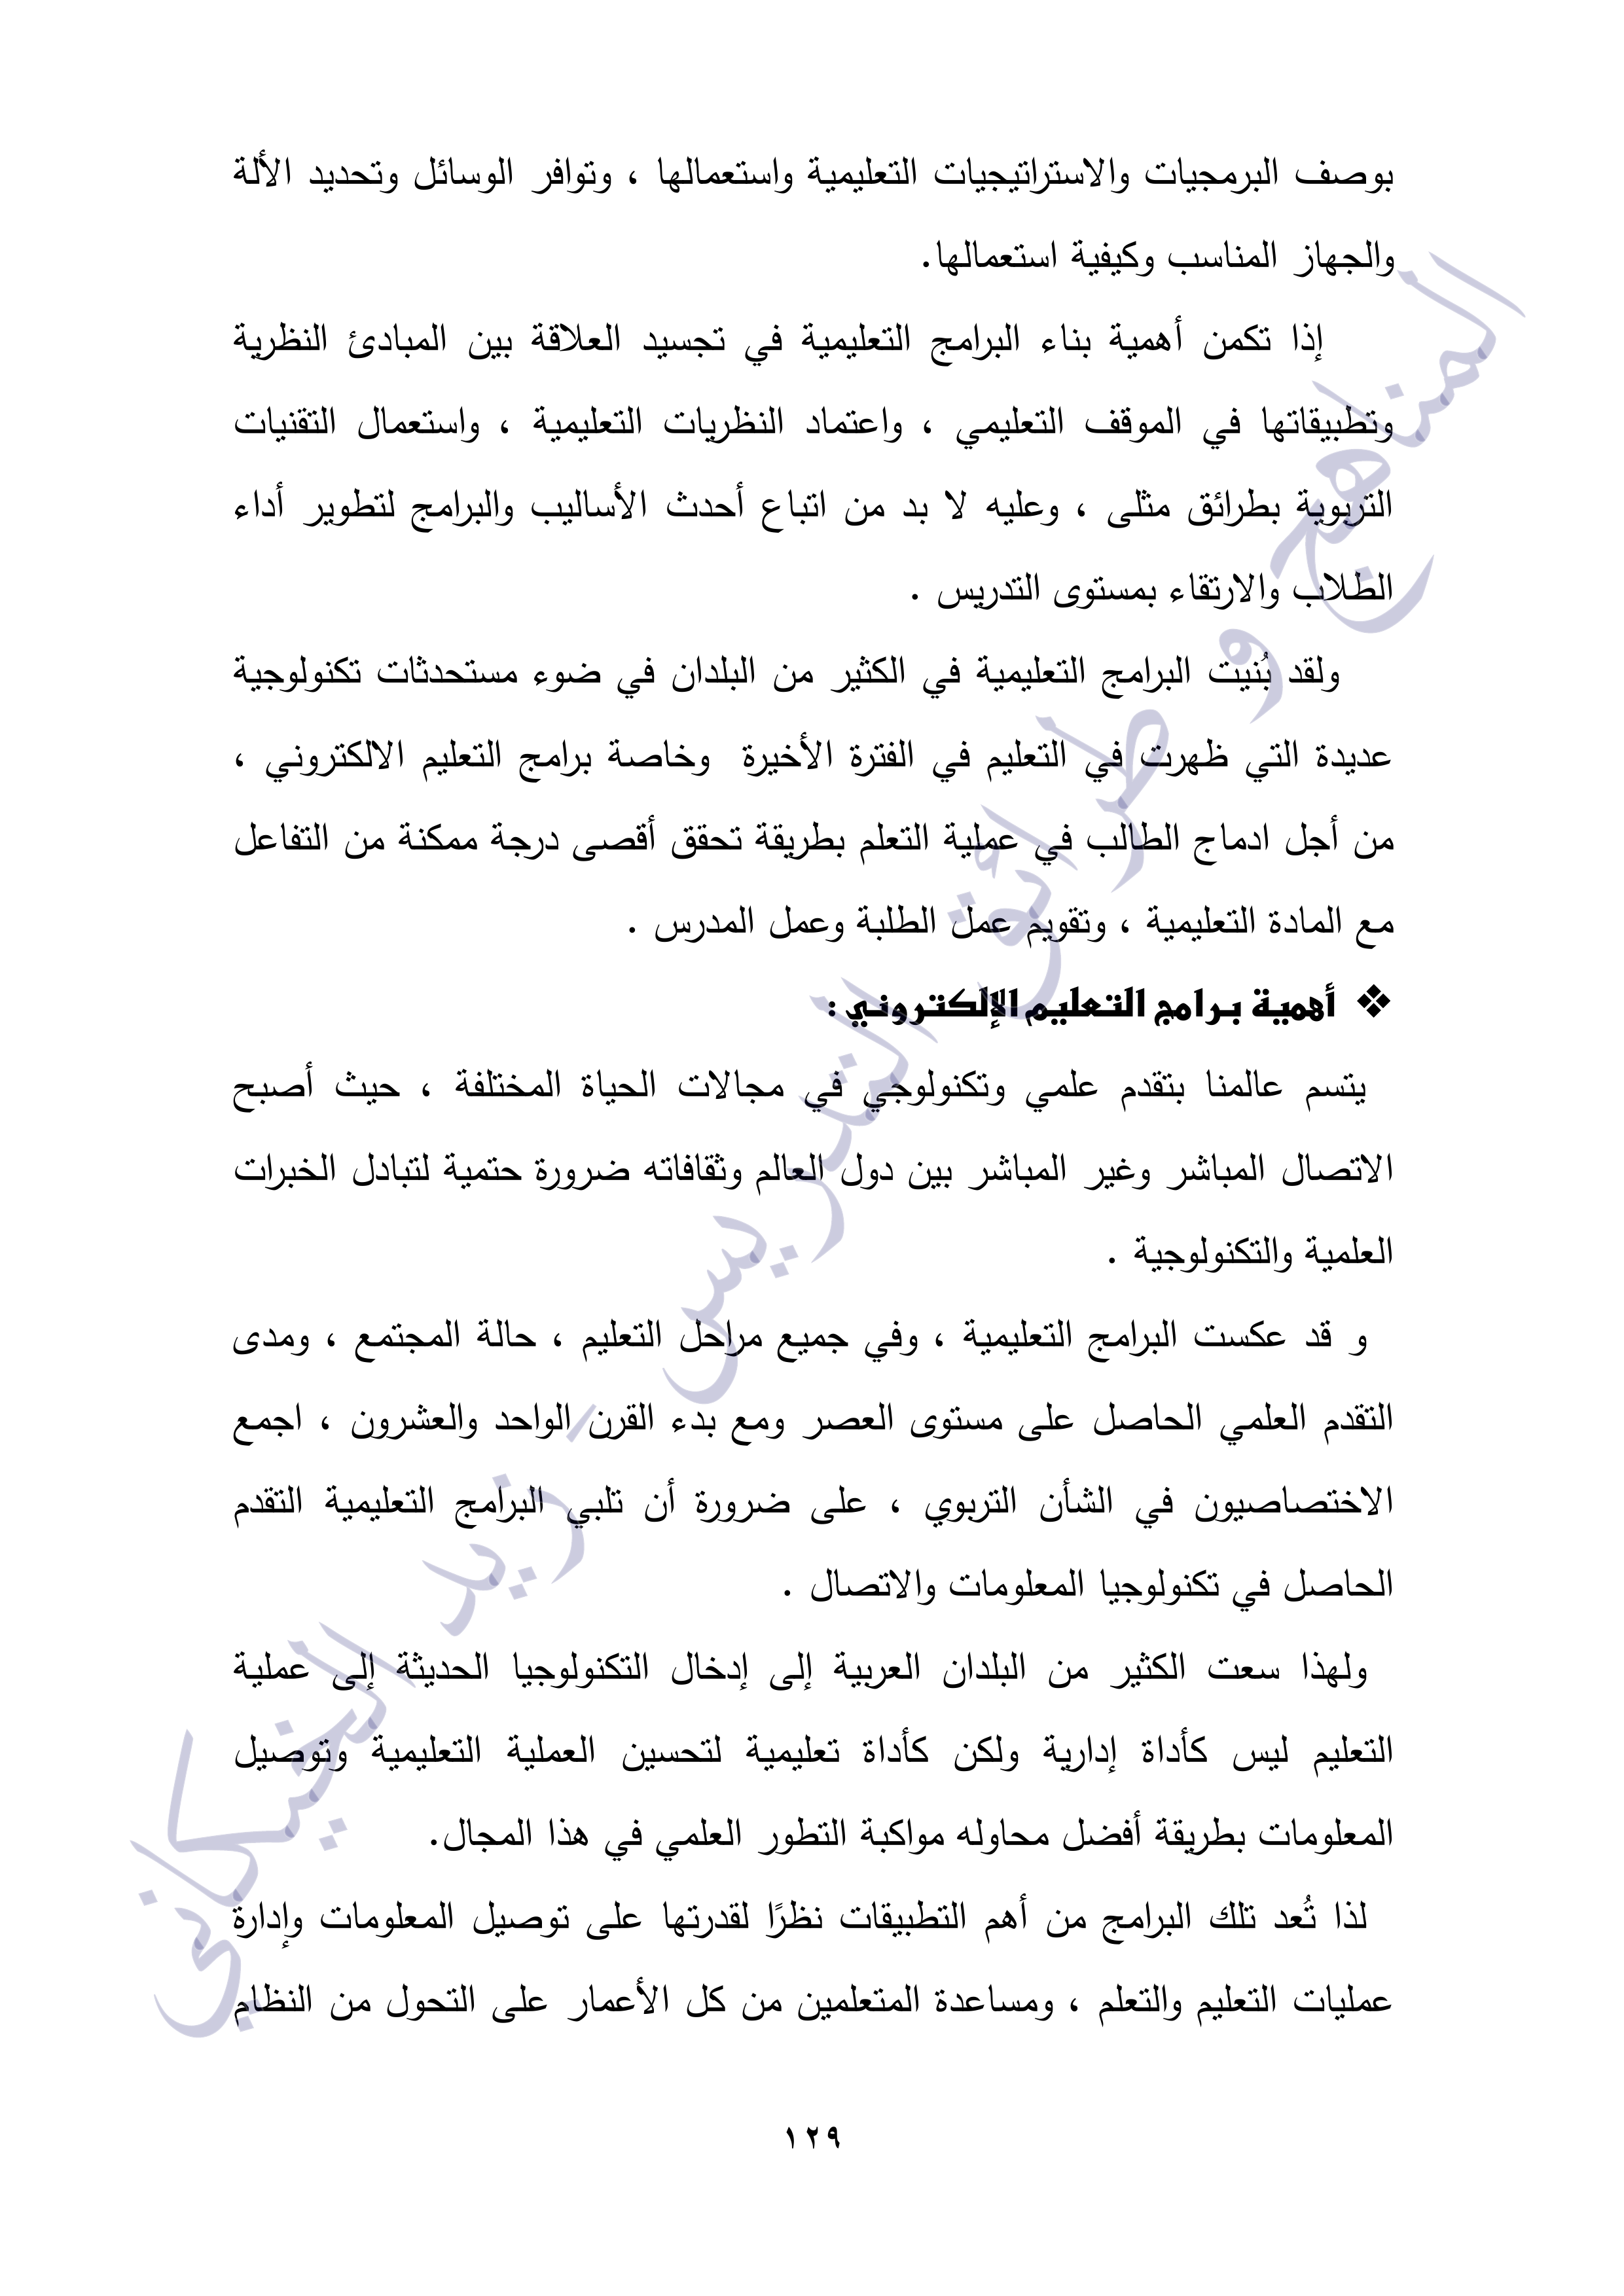 بوصف البرمجيات والاستراتيجيات التعليمية واستعمالها ، وتوافر الوسائل وتحديد الألة
والجهاز المناسب وكيفية استعمالها.
إذا تكمن أهمية بناء البرامج التعليمية في تجسيد العلاقة بين المبادئ النظرية
وتطبيقاتها في الموقف التعليمي ، واعتماد النظريات التعليمية ، واستعمال التقنيات
التربوية بطرائق مثلى ، وعليه لا بد من اتباع أحدث الأساليب والبرامج لتطوير أداء
الطلاب والارتقاء بمستوى التدريس .
ولقد بُنيت البرامج التعليمية في الكثير من البلدان في ضوء مستحدثات تكنولوجية
عديدة التي ظهرت في التعليم في الفترة الأخيرة وخاصة برامج التعليم الالكتروني ،
من أجل ادماج الطالب في عملية التعلم بطريقة تحقق أقصى درجة ممكنة من التفاعل
مع المادة التعليمية ، وتقويم عمل الطلبة وعمل المدرس .
❖ أهمية برامج التعليم الإلكتروني :
يتسم عالمنا بتقدم علمي وتكنولوجي في مجالات الحياة المختلفة ، حيث أصبح
الاتصال المباشر وغير المباشر بين دول العالم وثقافاته ضرورة حتمية لتبادل الخبرات
العلمية والتكنولوجية .
و قد عكست البرامج التعليمية ، وفي جميع مراحل التعليم ، حالة المجتمع ، ومدى
التقدم العلمي الحاصل على مستوى العصر ومع بدء القرن الواحد والعشرون ، اجمع
الاختصاصيون في الشأن التربوي ، على ضرورة أن تلبي البرامج التعليمية التقدم
الحاصل في تكنولوجيا المعلومات والاتصال .
ولهذا سعت الكثير من البلدان العربية إلى إدخال التكنولوجيا الحديثة إلى عملية
التعليم ليس كأداة إدارية ولكن كأداة تعليمية لتحسين العملية التعليمية وتوصيل
المعلومات بطريقة أفضل محاوله مواكبة التطور العلمي في هذا المجال.
لذا تُعد تلك البرامج من أهم التطبيقات نظرًا لقدرتها على توصيل المعلومات وإدارة
عمليات التعليم والتعلم ، ومساعدة المتعلمين من كل الأعمار على التحول من النظام
١٢٩
المناهج و طرائق التدريس - زيد الخيكاني